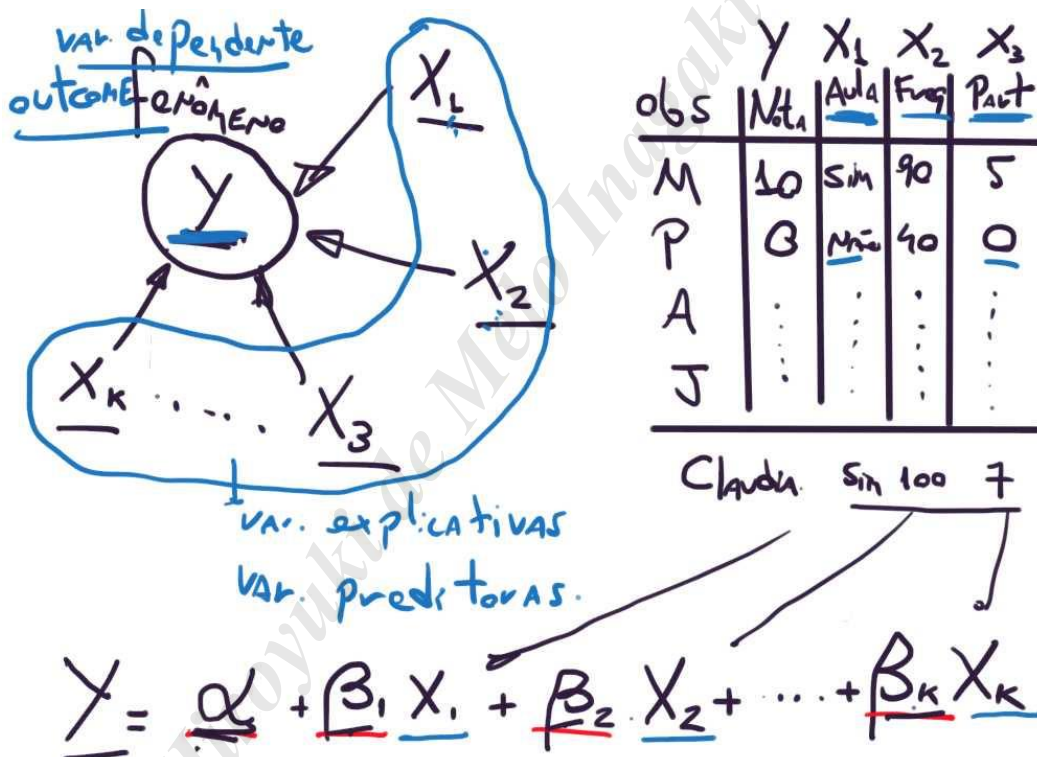 var. dependente
outcome
fenômeno
Y
X1
X2
X3
.....
Xk
var. explicativas
var. preditoras.
Y X1 X2 X3
obs Nota Aula Freq Part
M 10 Sim 90 5
P 0 Não 40 0
A
J
Claudia Sim 100 7
Y = α + β1 X1 + β2 X2 + ... + βk Xk